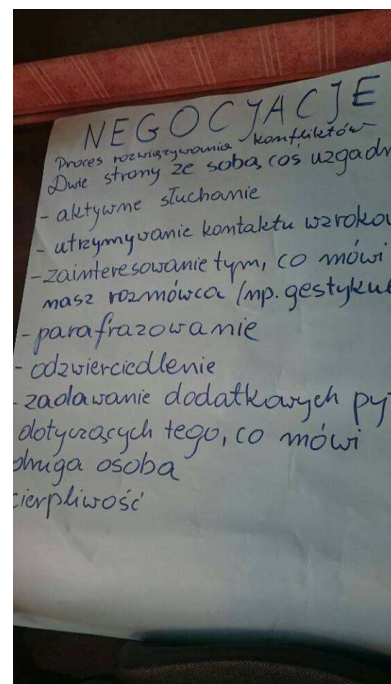 NEGOCJACJE
Proces rozwiązywania konfliktów
Dwie strony ze sobą coś uzgadn
- aktywne słuchanie
- utrzymywanie kontaktu wzrokow
- zainteresowanie tym, co mówi
masz rozmówca (np. gestykul
- parafrazowanie
- odzwierciedlenie
- zadawanie dodatkowych py
dotyczących tego, co mówi
druga osoba
cierpliwość